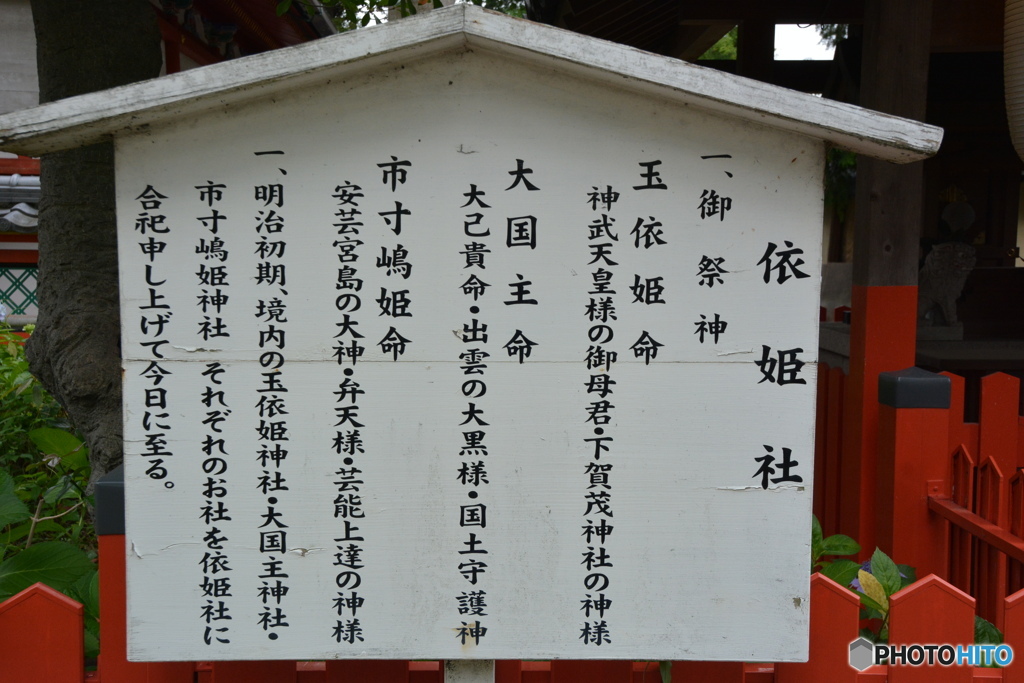 依姫社
一、御祭神
玉依姫命
神武天皇様の御母君・下賀茂神社の神様
大国主命
大己貴命・出雲の大黒様・国土守護神
市寸嶋姫命
安芸宮島の大神・弁天様・芸能上達の神様
一、明治初期、境内の玉依姫神社・大国主神社・
市寸嶋姫神社 それぞれのお社を依姫社に
合祀申し上げて今日に至る。
PHOTOHITO